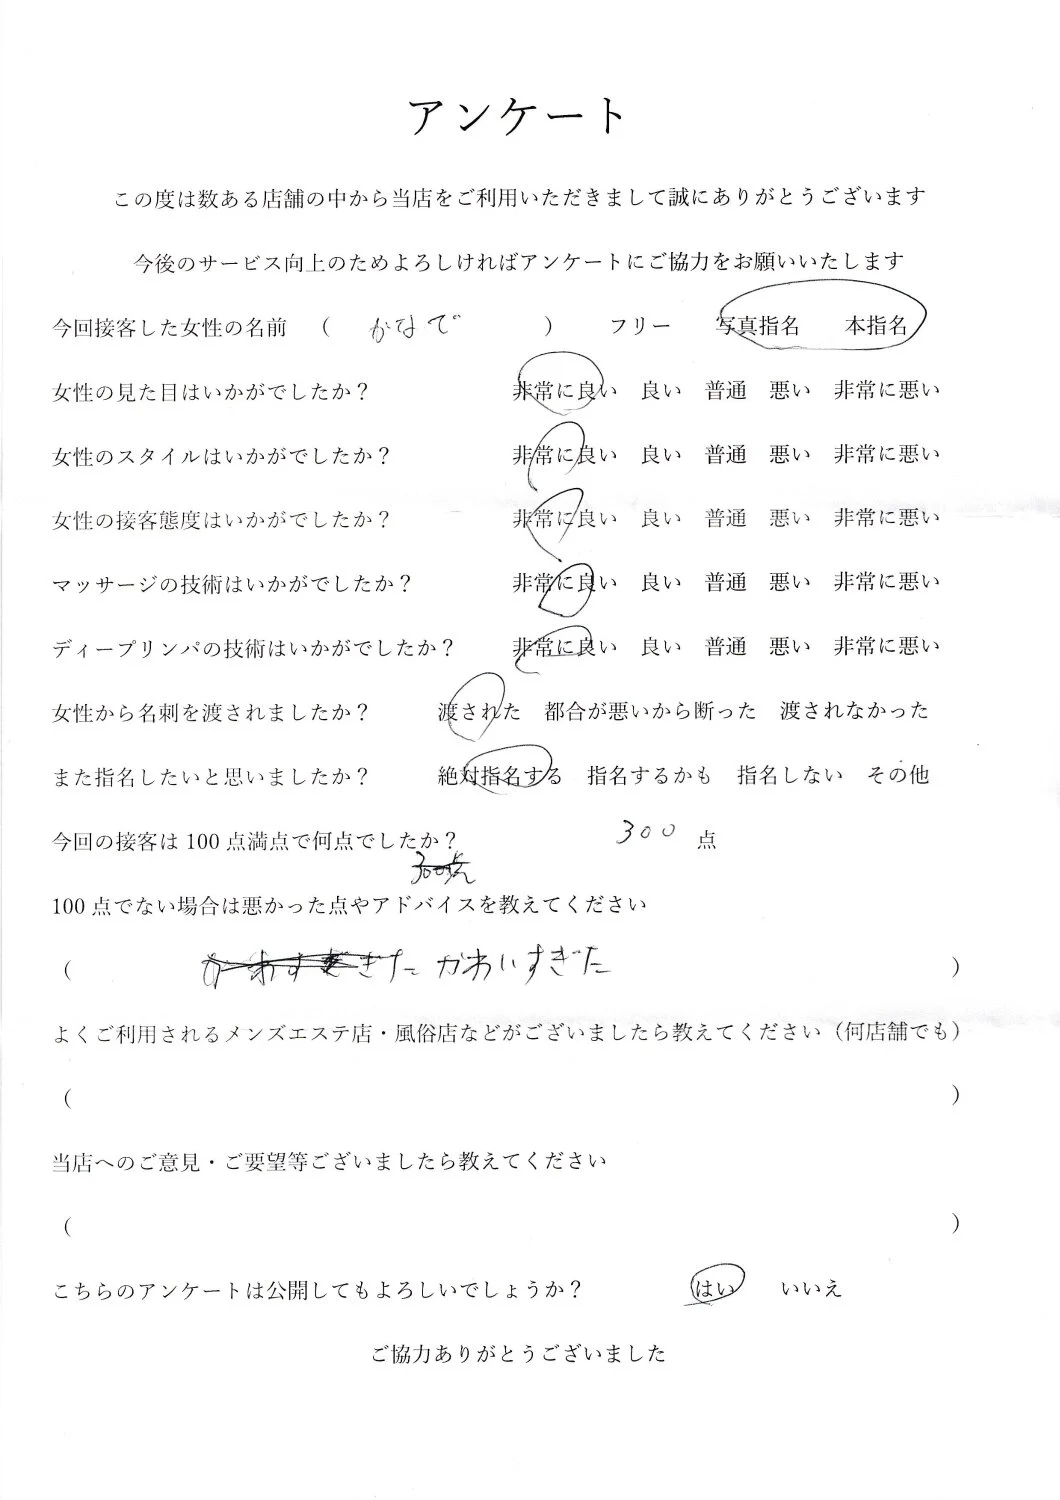 アンケート
この度は数ある店舗の中から当店をご利用いただきまして誠にありがとうございます
今後のサービス向上のためよろしければアンケートにご協力をお願いいたします
今回接客した女性の名前 ( かなで ) フリー 写真指名 本指名
女性の見た目はいかがでしたか？ 非常に良い 良い 普通 悪い 非常に悪い
女性のスタイルはいかがでしたか？ 非常に良い 良い 普通 悪い 非常に悪い
女性の接客態度はいかがでしたか？ 非常に良い 良い 普通 悪い 非常に悪い
マッサージの技術はいかがでしたか？ 非常に良い 良い 普通 悪い 非常に悪い
ディープリンパの技術はいかがでしたか？ 非常に良い 良い 普通 悪い 非常に悪い
女性から名刺を渡されましたか？ 渡された 都合が悪いから断った 渡されなかった
また指名したいと思いましたか？ 絶対指名する 指名するかも 指名しない その他
今回の接客は 100 点満点で何点でしたか？ 300 点
300点
100 点でない場合は悪かった点やアドバイスを教えてください
( かわいすぎた )
よくご利用されるメンズエステ店・風俗店などがございましたら教えてください（何店舗でも）
( )
当店へのご意見・ご要望等ございましたら教えてください
( )
こちらのアンケートは公開してもよろしいでしょうか？ はい いいえ
ご協力ありがとうございました